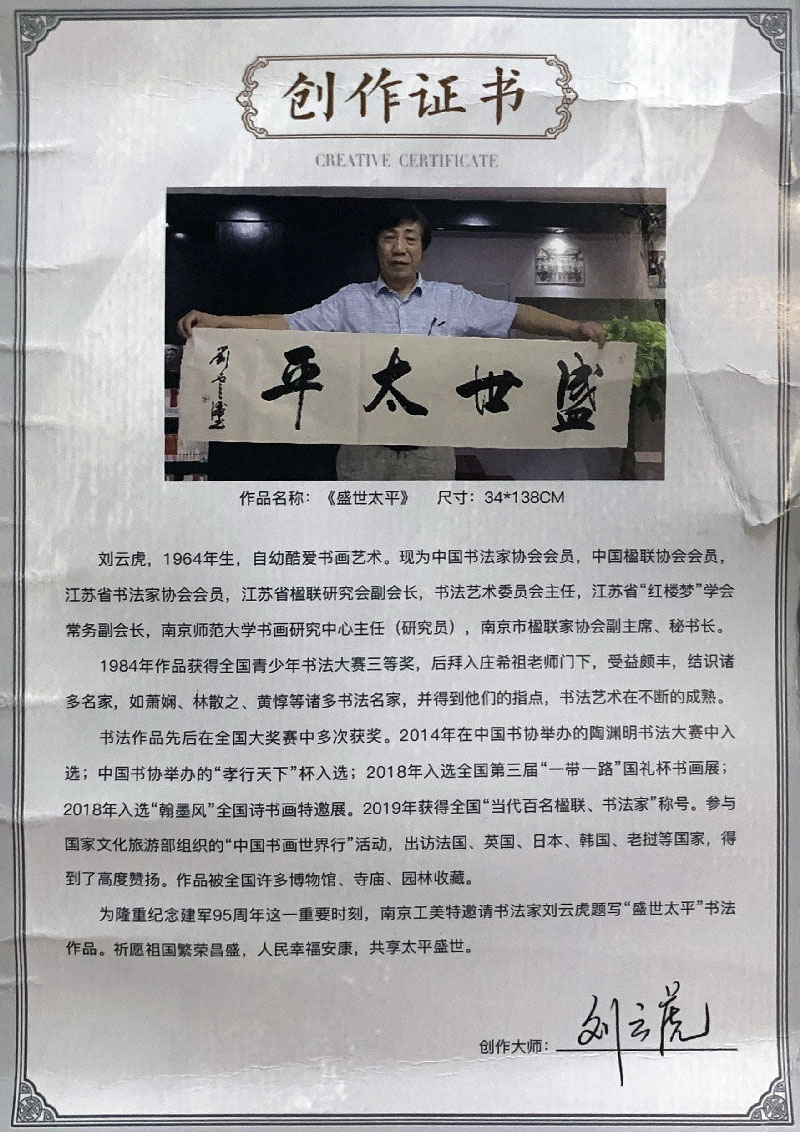 创作证书
CREATIVE CERTIFICATE
盛世太平
刘云虎
作品名称：《盛世太平》 尺寸：34*138CM
刘云虎，1964年生，自幼酷爱书画艺术。现为中国书法家协会会员，中国楹联协会会员，
江苏省书法家协会会员，江苏省楹联研究会副会长，书法艺术委员会主任，江苏省“红楼梦”学会
常务副会长，南京师范大学书画研究中心主任（研究员），南京市楹联家协会副主席、秘书长。
1984年作品获得全国青少年书法大赛三等奖，后拜入庄希祖老师门下，受益颇丰，结识诸
多名家，如萧娴、林散之、黄惇等诸多书法名家，并得到他们的指点，书法艺术在不断的成熟。
书法作品先后在全国大奖赛中多次获奖。2014年在中国书协举办的陶渊明书法大赛中入
选；中国书协举办的“孝行天下”杯入选；2018年入选全国第三届“一带一路”国礼杯书画展；
2018年入选“翰墨风”全国诗书画特邀展。2019年获得全国“当代百名楹联、书法家”称号。参与
国家文化旅游部组织的“中国书画世界行”活动，出访法国、英国、日本、韩国、老挝等国家，得
到了高度赞扬。作品被全国许多博物馆、寺庙、园林收藏。
为隆重纪念建军95周年这一重要时刻，南京工美特邀请书法家刘云虎题写“盛世太平”书法
作品。祈愿祖国繁荣昌盛，人民幸福安康，共享太平盛世。
创作大师：刘云虎